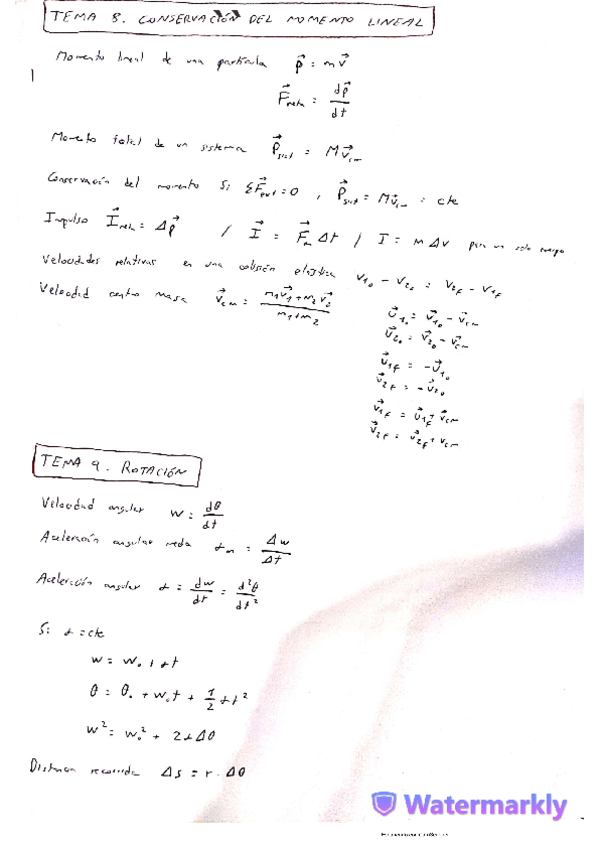 TEMA 8. CONSERVACIÓN DEL MOMENTO LINEAL
Momento lineal de una partícula p⃗ = m v⃗
F⃗neta = dp⃗/dt
Momento total de un sistema P⃗sist = M v⃗cm
Conservación del momento Si ΣF⃗ext = 0 , P⃗sist = M v⃗cm = cte
Impulso I⃗neta = Δp⃗ / I⃗ = F⃗m Δt / I = m Δv para un solo cuerpo
Velocidades relativas en una colisión elástica v1₀ - v2₀ = v2f - v1f
Velocidad centro masa v⃗cm = (m1v⃗1 + m2v⃗2)/(m1 + m2)
u⃗1₀ = v⃗1₀ - v⃗cm
u⃗2₀ = v⃗2₀ - v⃗cm
u⃗1f = -u⃗1₀
u⃗2f = -u⃗2₀
v⃗1f = u⃗1f + v⃗cm
v⃗2f = u⃗2f + v⃗cm
TEMA 9. ROTACIÓN
Velocidad angular w = dθ/dt
Aceleración angular media αm = Δw/Δt
Aceleración angular α = dw/dt = d²θ/dt²
Si α = cte
w = w₀ + αt
θ = θ₀ + w₀t + 1/2 αt²
w² = w₀² + 2αΔθ
Distancia recorrida Δs = r · Δθ
Watermarkly